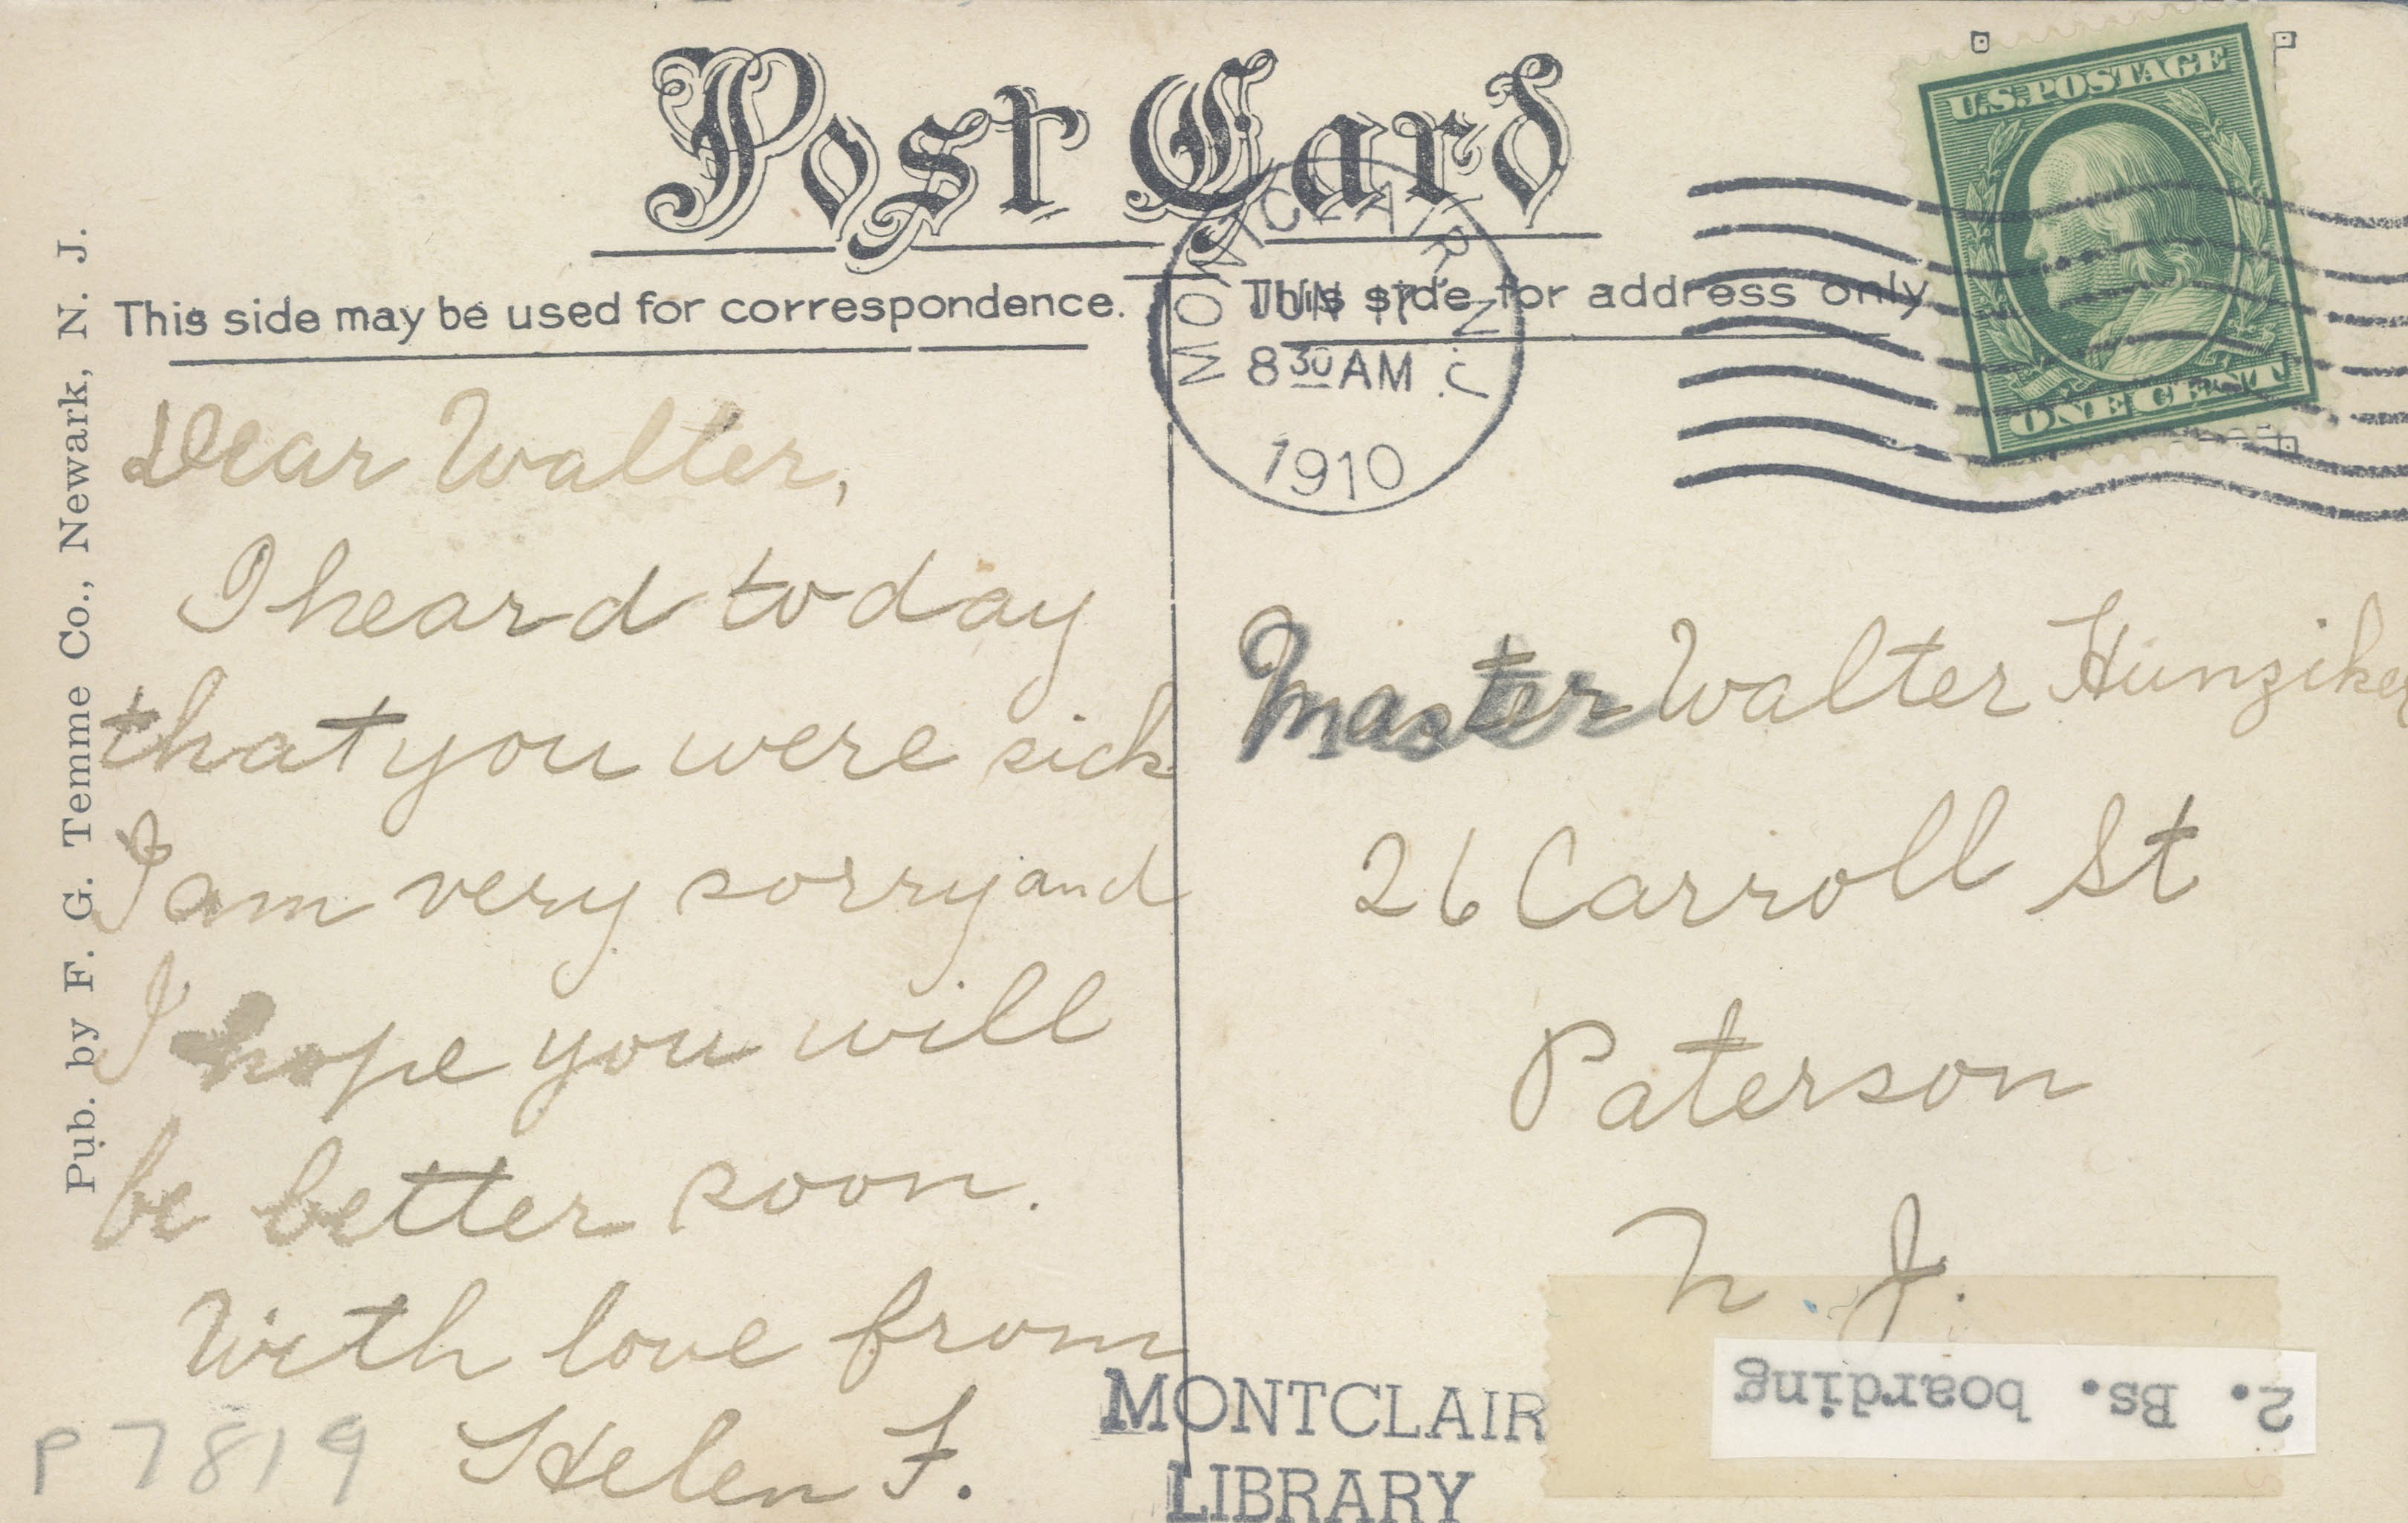 Post Card
This side may be used for correspondence.
This side for address only
U.S. POSTAGE
ONE CENT
MONTCLAIR N.J.
JUN 17
8 30 AM
1910
Pub. by F. G. Temme Co., Newark, N. J.
Dear Walter,
I heard today
that you were sick
I am very sorry and
I hope you will
be better soon.
With love from
Helen F.
Master Walter Hunziker
26 Carroll St
Paterson
N. J.
P7819
MONTCLAIR
LIBRARY
2. Bs. boarding